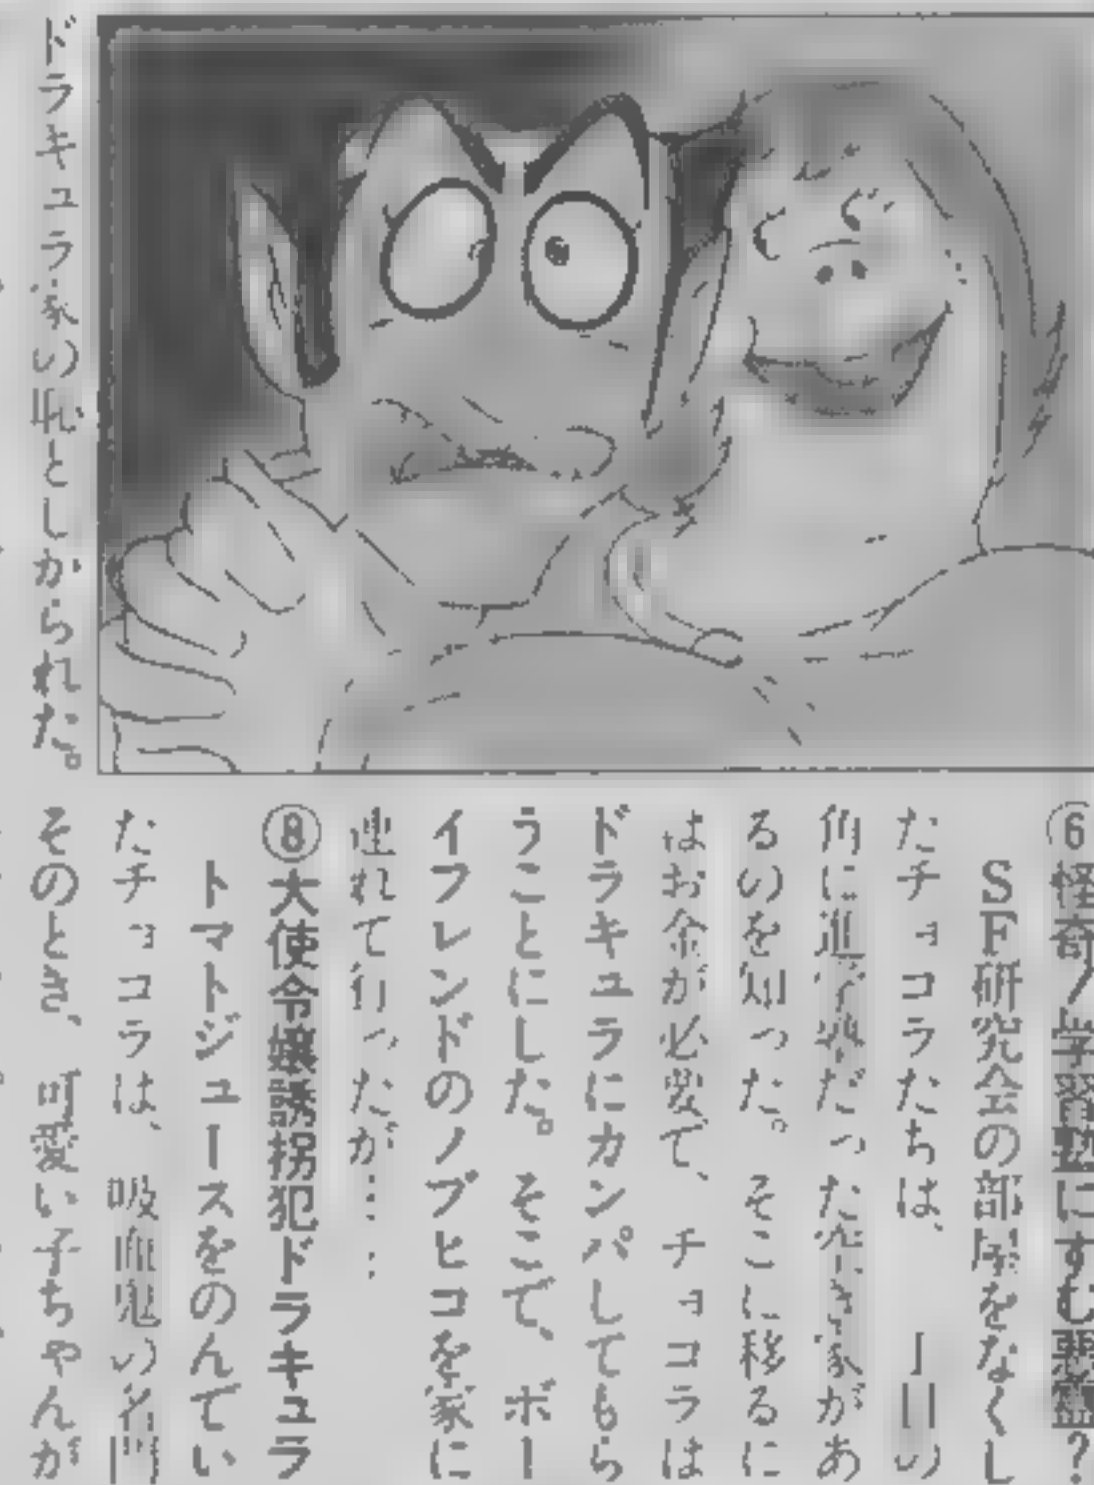 ドラキュラ家の恥としかられた。
⑥怪奇！学習塾にすむ悪霊？
SF研究会の部屋をなくし
たチョコラたちは、丁目の
角に進学塾だった空き家があ
るのを知った。そこに移るに
はお金が必要で、チョコラは
ドラキュラにカンパしてもら
うことにした。そこで、ボー
イフレンドのノブヒコを家に
連れて行ったが……
⑧大使令嬢誘拐犯ドラキュラ
トマトジュースをのんでい
たチョコラは、吸血鬼の名門
そのとき、可愛い子ちゃんが